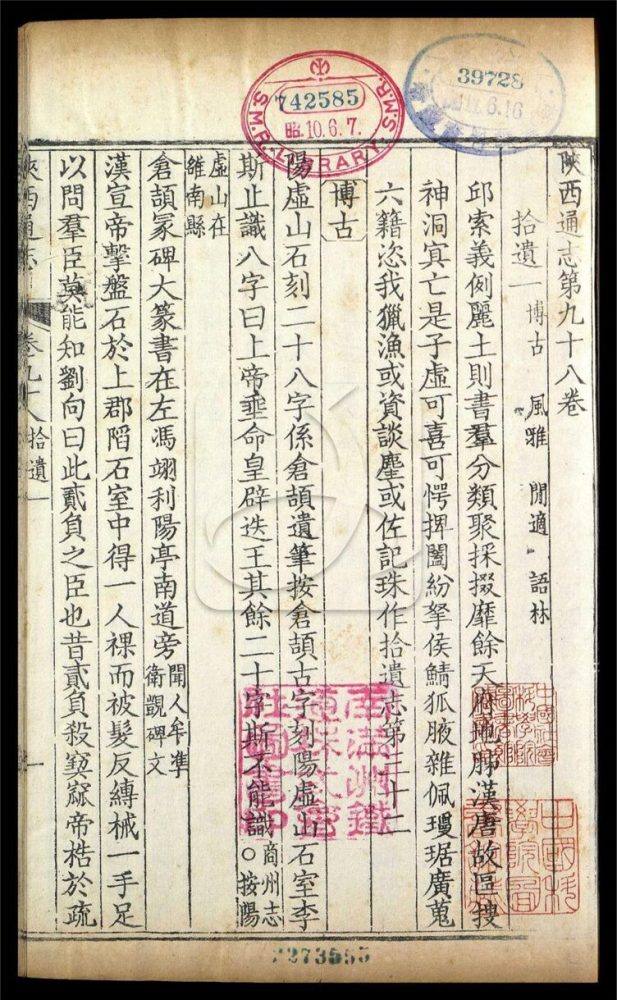 陝西通志第九十八卷
拾遺一 博古 風雅 閒適 語林
邱索義例麗土則書羣分類聚採掇靡餘天府地脈漢唐故區搜
神洞㝠亡是子虛可喜可愕捭闔紛拏侯鯖狐腋雜佩瓊琚廣蒐
六籍恣我獵漁或資談麈或佐記珠作拾遺志第三十二
博古
陽虛山石刻二十八字係倉頡遺筆按倉頡古字刻陽虛山石室李
斯止識八字曰上帝垂命皇辟迭王其餘二十字斯不能識商州志○按陽
虛山在
雒南縣
倉頡冢碑大篆書在左馮翊利陽亭南道旁聞人牟準衛覬碑文
漢宣帝擊盤石於上郡陷石室中得一人裸而被髮反縛械一手足
以問羣臣莫能知劉向曰此貳負之臣也昔貳負殺窫窳帝梏於疏
陝西通志 卷九十八 拾遺一 一
S.M.R. LIBRARY. S.M.R.
742585
昭10.6.7.
39728
6.16
南滿洲鐵
道株式會
社圖書印